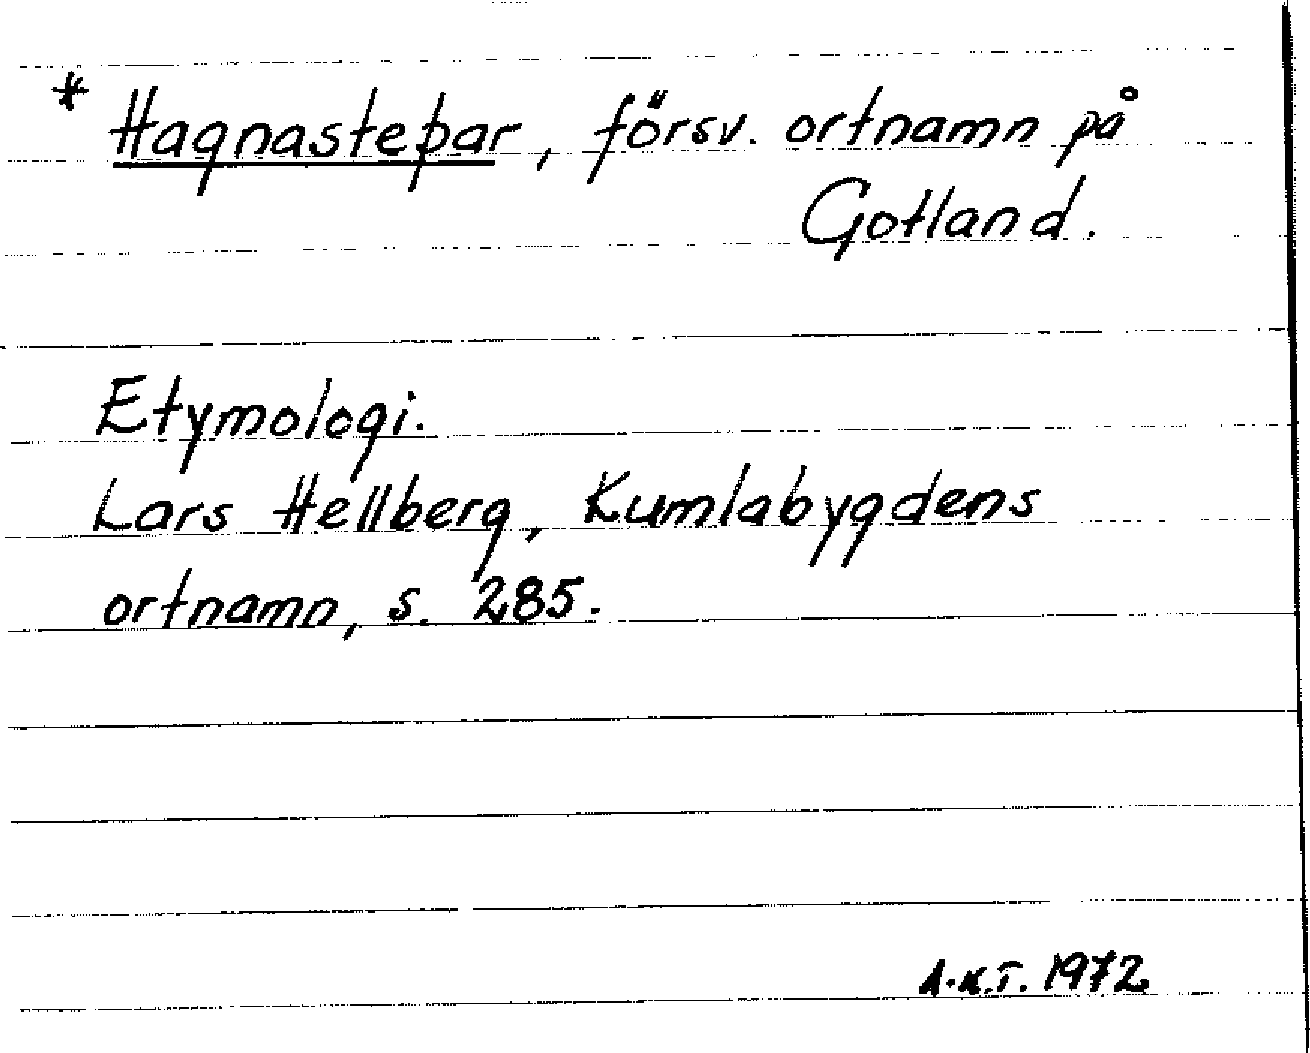 * Hagnasteþar, försv. ortnamn på
Gotland.
Etymologi.
Lars Hellberg, Kumlabygdens
ortnamn, s. 285.
A.K.T. 1972